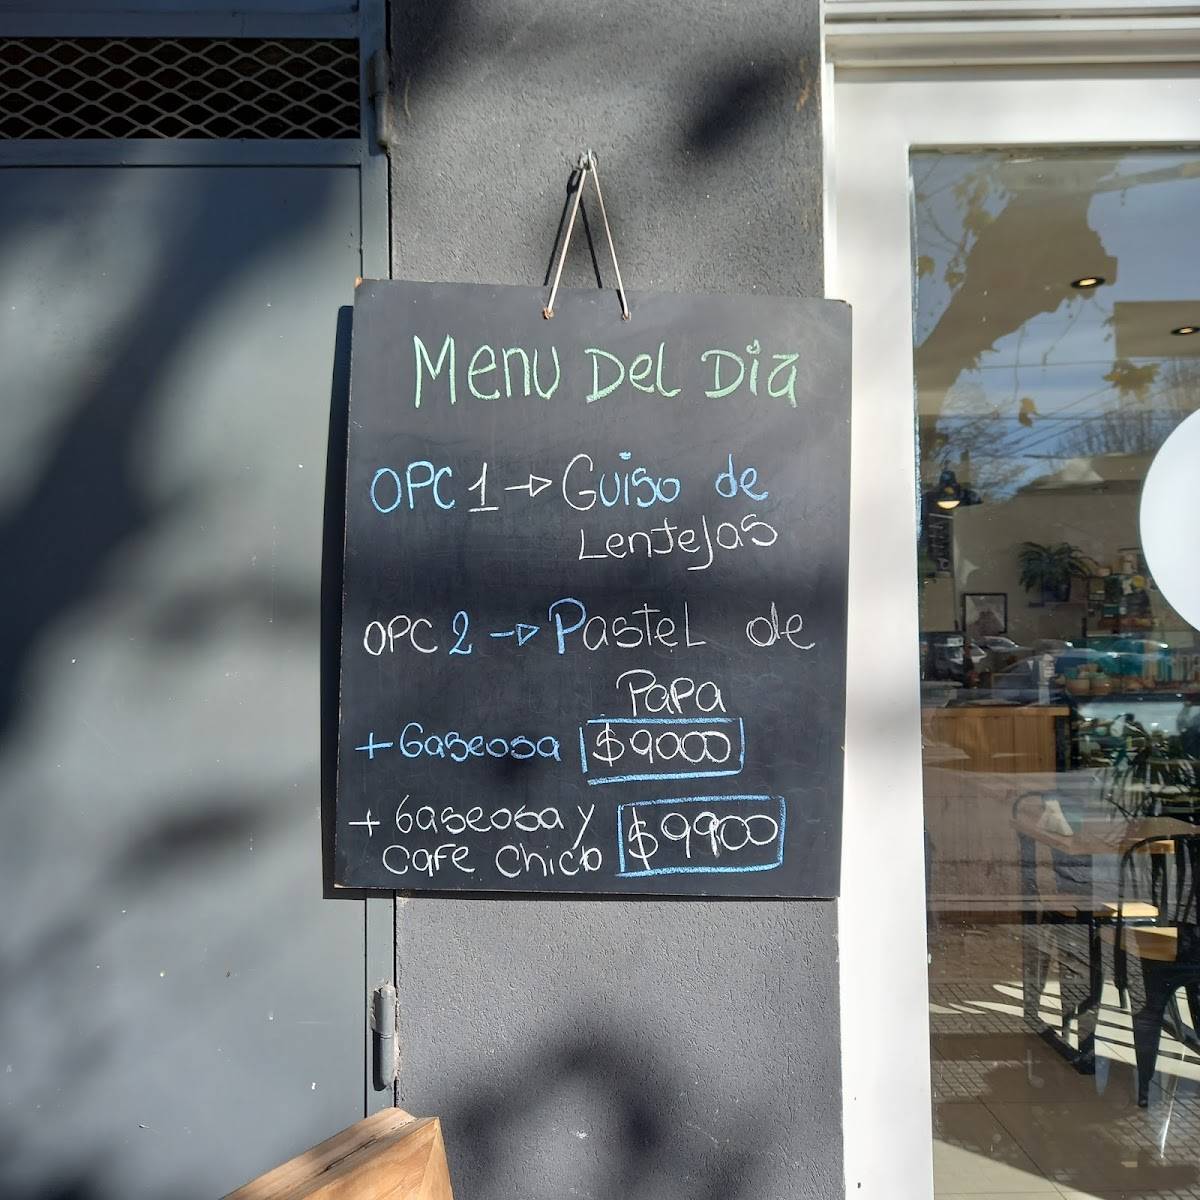 Menu Del Dia
OPC 1 → Guiso de
Lentejas
OPC 2 → Pastel de
Papa
+ Gaseosa $9000
+ Gaseosa y $9900
Cafe Chico